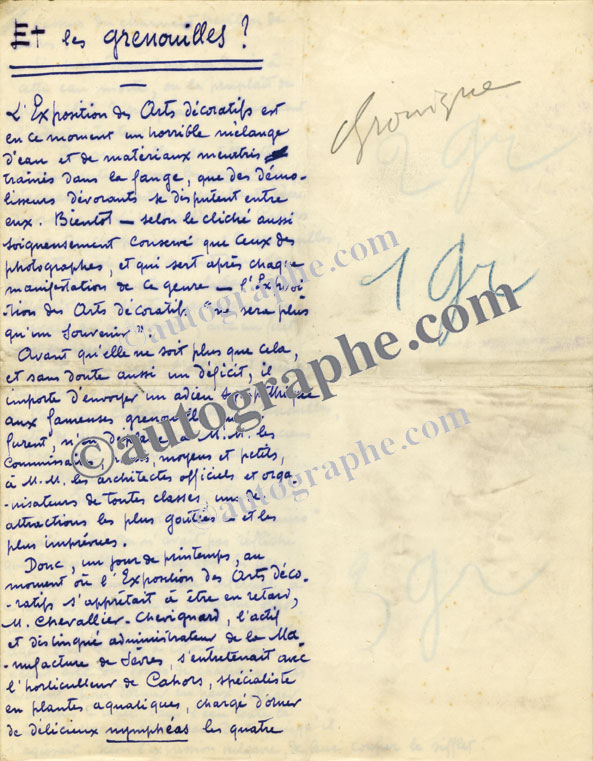 Et les grenouilles ?
L'Exposition des Arts décoratifs est
en ce moment un horrible mélange
d'eau et de matériaux meurtris
traînés dans la fange, que des démo-
lisseurs dévorants se disputent entre
eux. Bientôt — selon le cliché aussi
soigneusement conservé que ceux des
photographes, et qui sert après chaque
manifestation de ce genre — l'Exposi
tion des Arts Décoratifs "ne sera plus
qu'un souvenir"
Avant qu'elle ne soit plus que cela,
et sans doute aussi un déficit, il
importe d'envoyer un adieu sympathique
aux fameuses grenouilles qui
furent, n'en déplaise à M.M. les
Commissaires, moyens et petits,
à M.M. les architectes officiels et orga
-nisateurs de toutes classes, une des
attractions les plus goûtées — et les
plus imprévues.
Donc, un jour de printemps, au
moment où l'Exposition des Arts déco-
-ratifs s'apprêtait à être en retard,
M. Chevallier-Chevignard, l'actif
et distingué administrateur de la Ma-
-nufacture de Sèvres, s'entretenait avec
l'horticulteur de Cahors, spécialiste
en plantes aquatiques, chargé d'orner
de délicieux nymphéas les quatre
Chronique
2 gr
1 gr
3 gr
©autographe.com
©autographe.com
©autographe.com